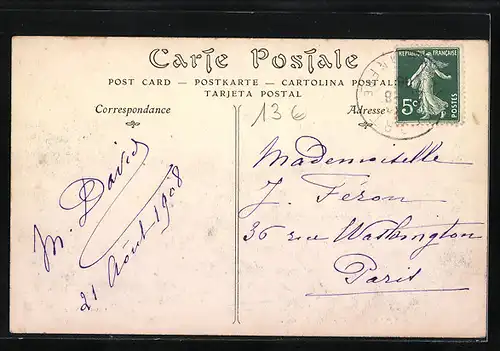 Carte Postale
POST CARD — POSTKARTE — CARTOLINA POSTALE
TARJETA POSTAL
Correspondance
13€
Adresse
REPUBLIQUE FRANÇAISE
5c
POSTES
M. David
21 Août 1908
Mademoiselle
J. Féron
36 rue Washington
Paris